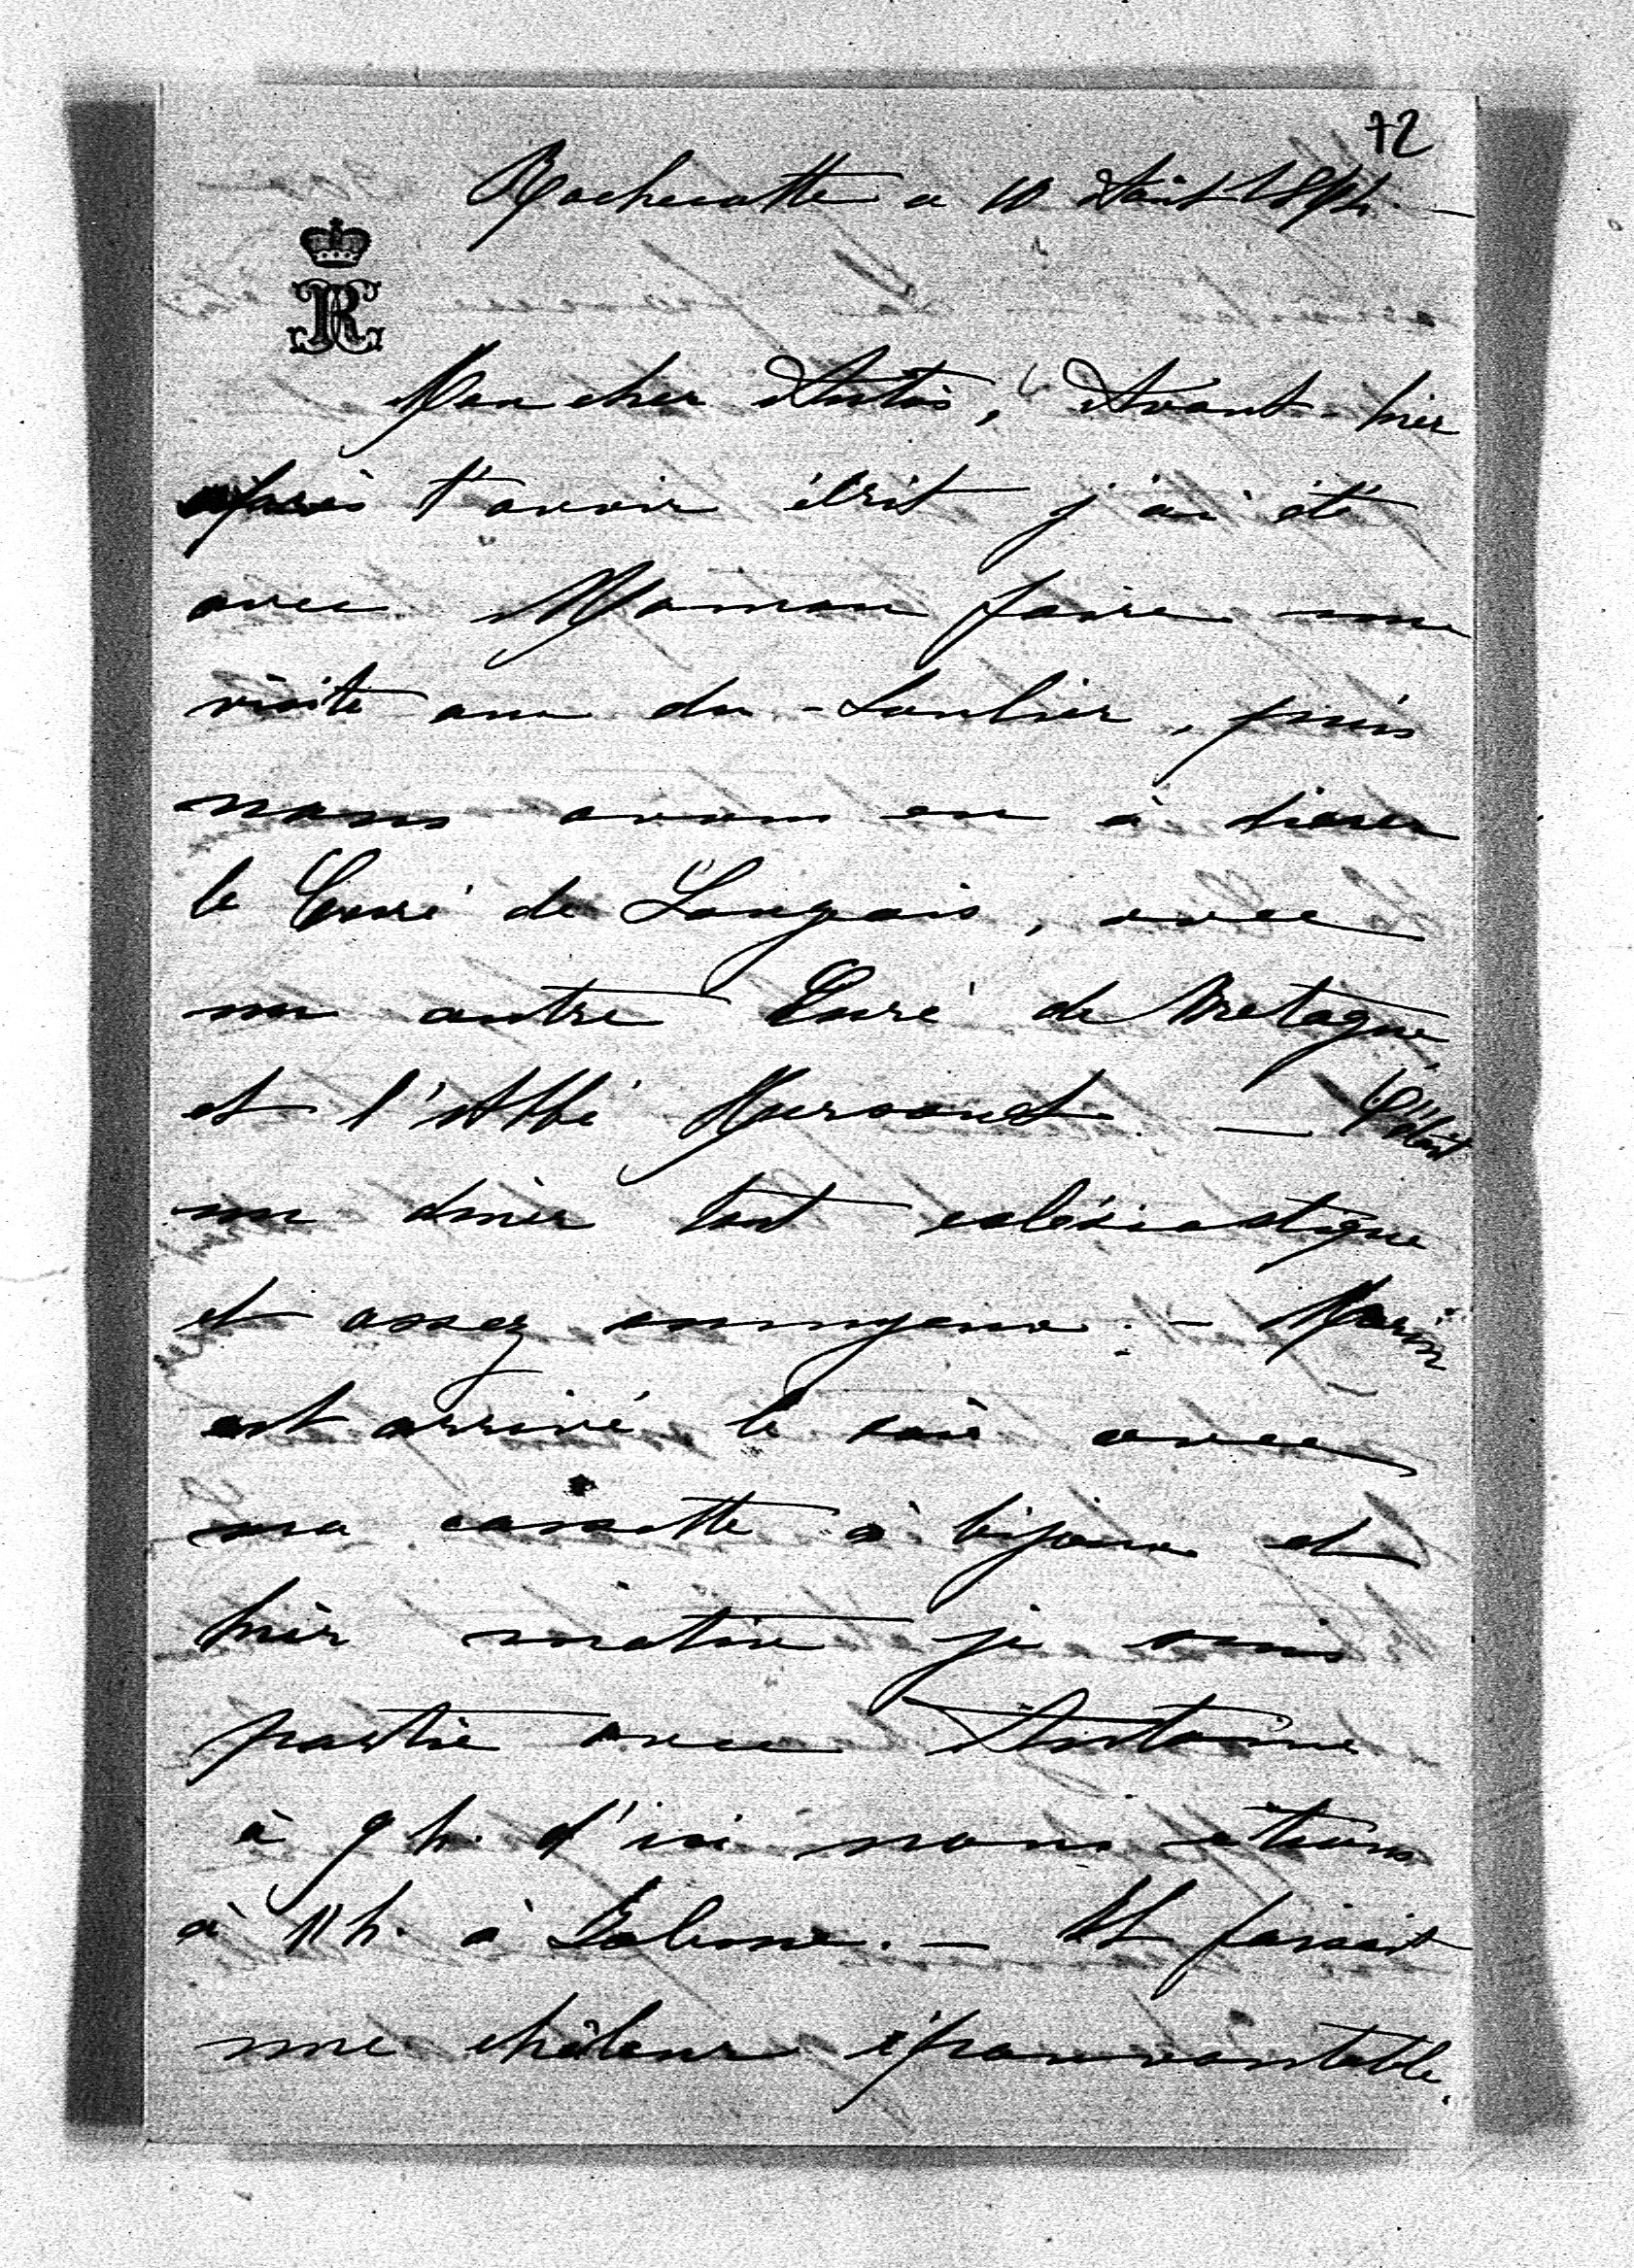 72
Rochecotte a 10 Août 1894. —
Mon cher Antas, Avant-hier
après t'avoir écrit j'ai été
avec Maman faire une
visite aux du-Soulier, puis
nous avons eu à diner
le Curé de Langeais, avec
un autre Curé de Bretagne,
et l'Abbé — C'était
un diner tout eclésiastique
et assez ennuyeux. — Marin
est arrivé le soir avec
ma cassette à bijoux et
hièr matin je suis
partie avec Antoine
à 9 h. d'ici nous étions
à 11 h. à — Il faisait
une châleur épouvantable.